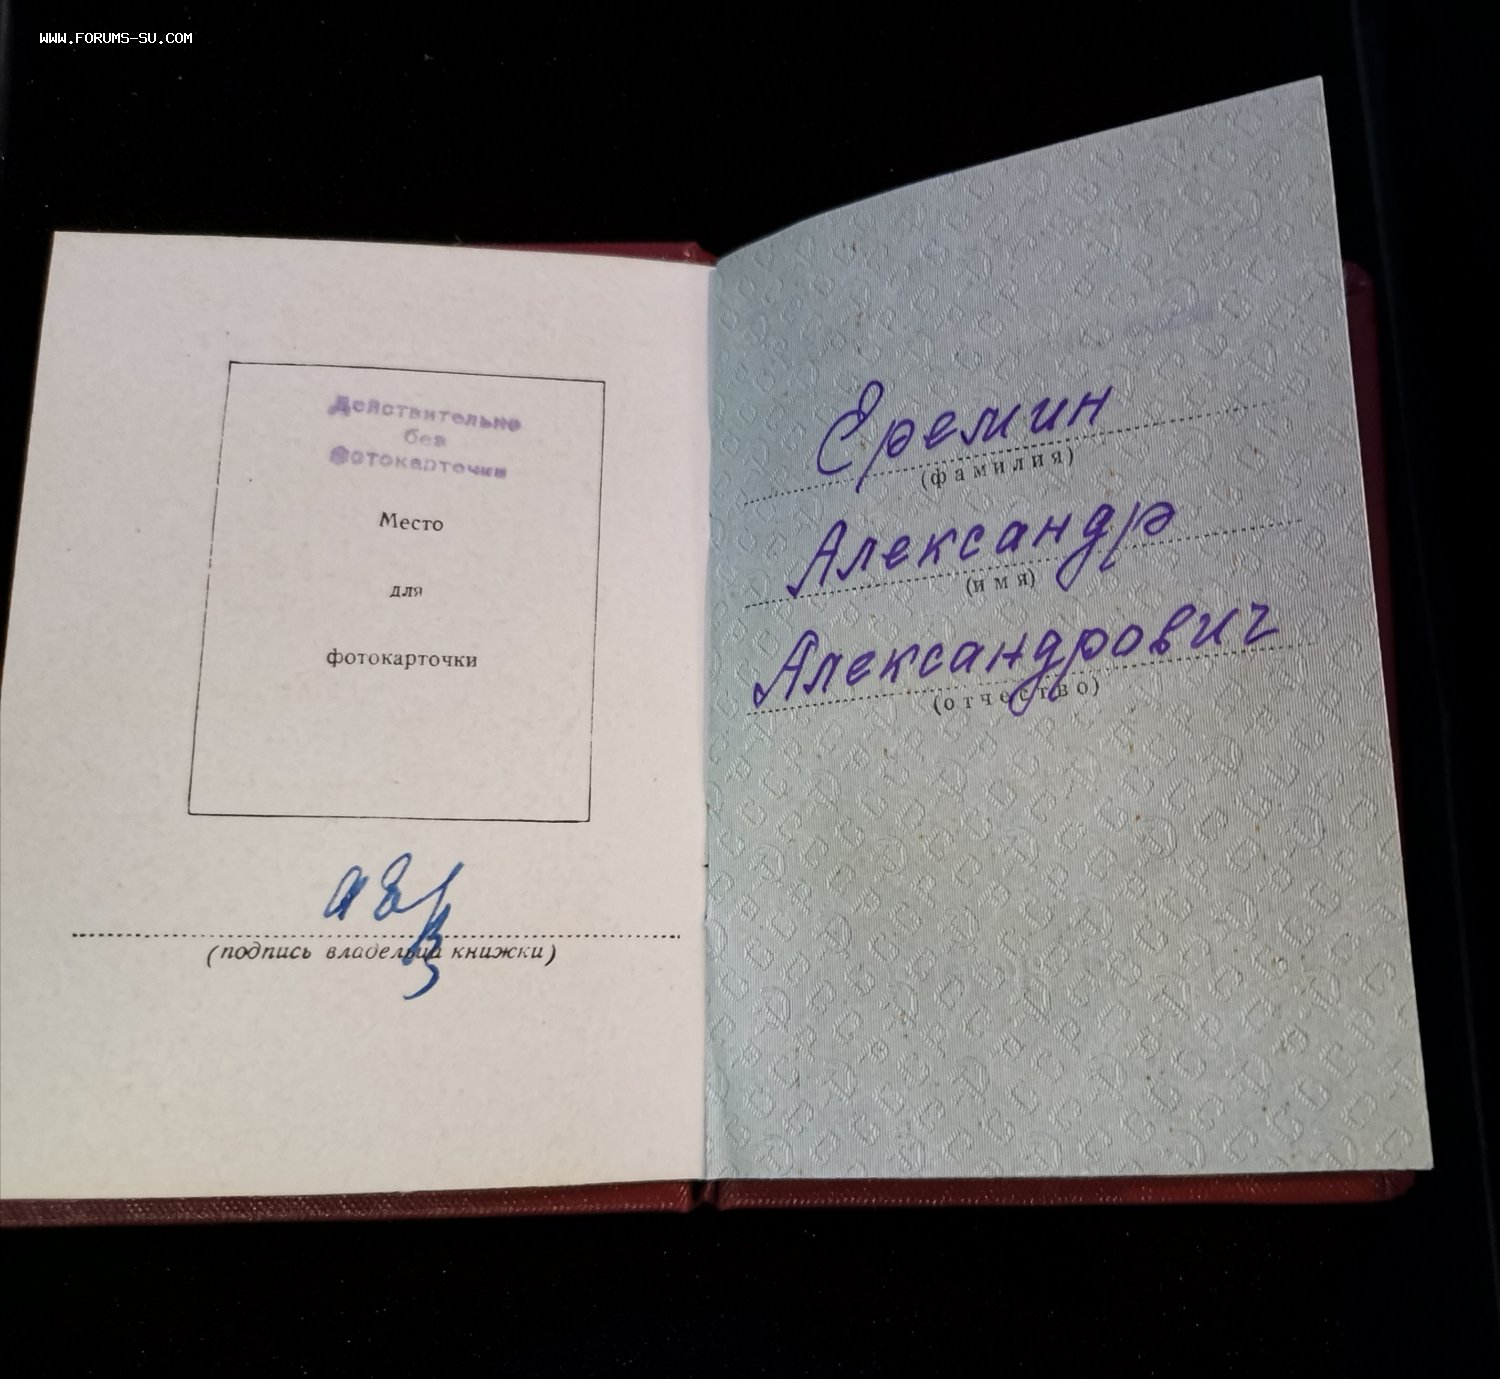 WWW.FORUMS-SU.COM
Действительно
без
фотокарточки
Место
для
фотокарточки
(подпись владельца книжки)
Еремин
(фамилия)
Александр
(имя)
Александрович
(отчество)